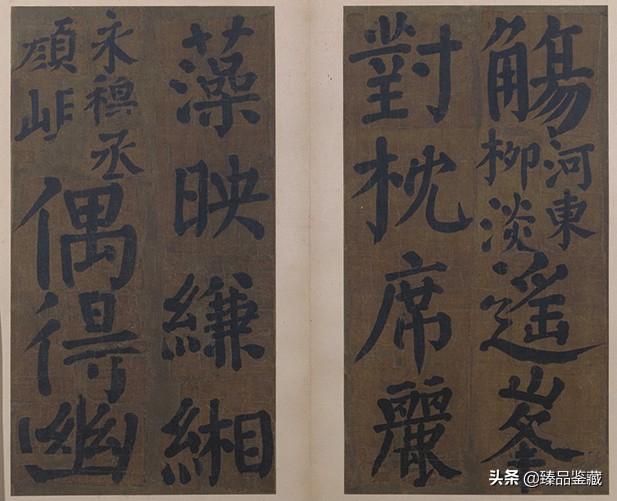 觴河東柳淡遙峯
對枕席麗
藻映縑緗
永穆丞顔峴偶得幽
头条 @臻品鉴藏